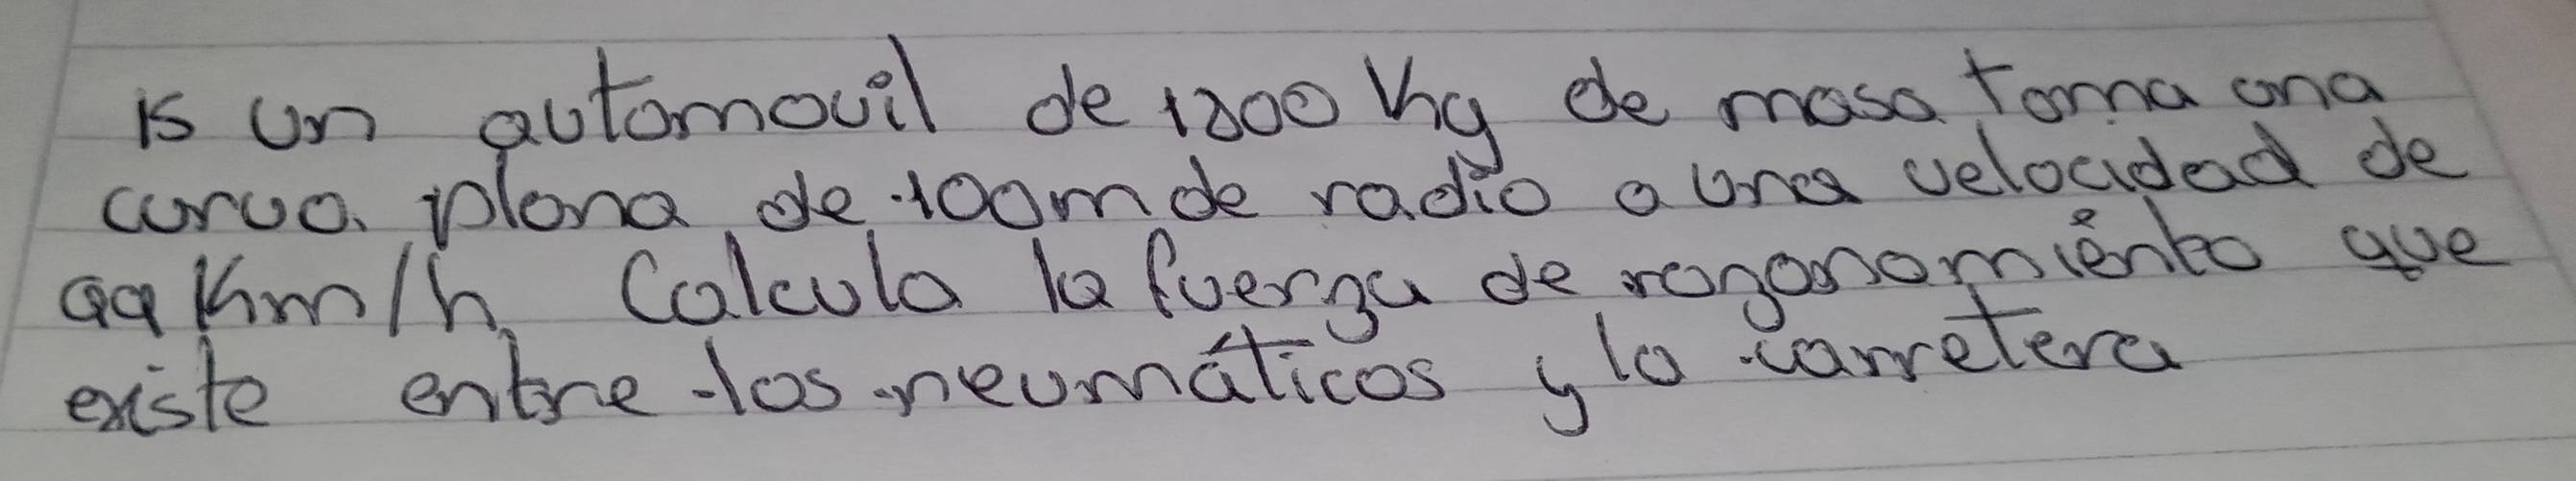 15 un automovil de 1800 Kg de masa toma una
curva plana de 100m de radio a una velocidad de
99 Km/h, Calcula la fuerza de rozonomiento que
existe entre los neumáticos y la carretera